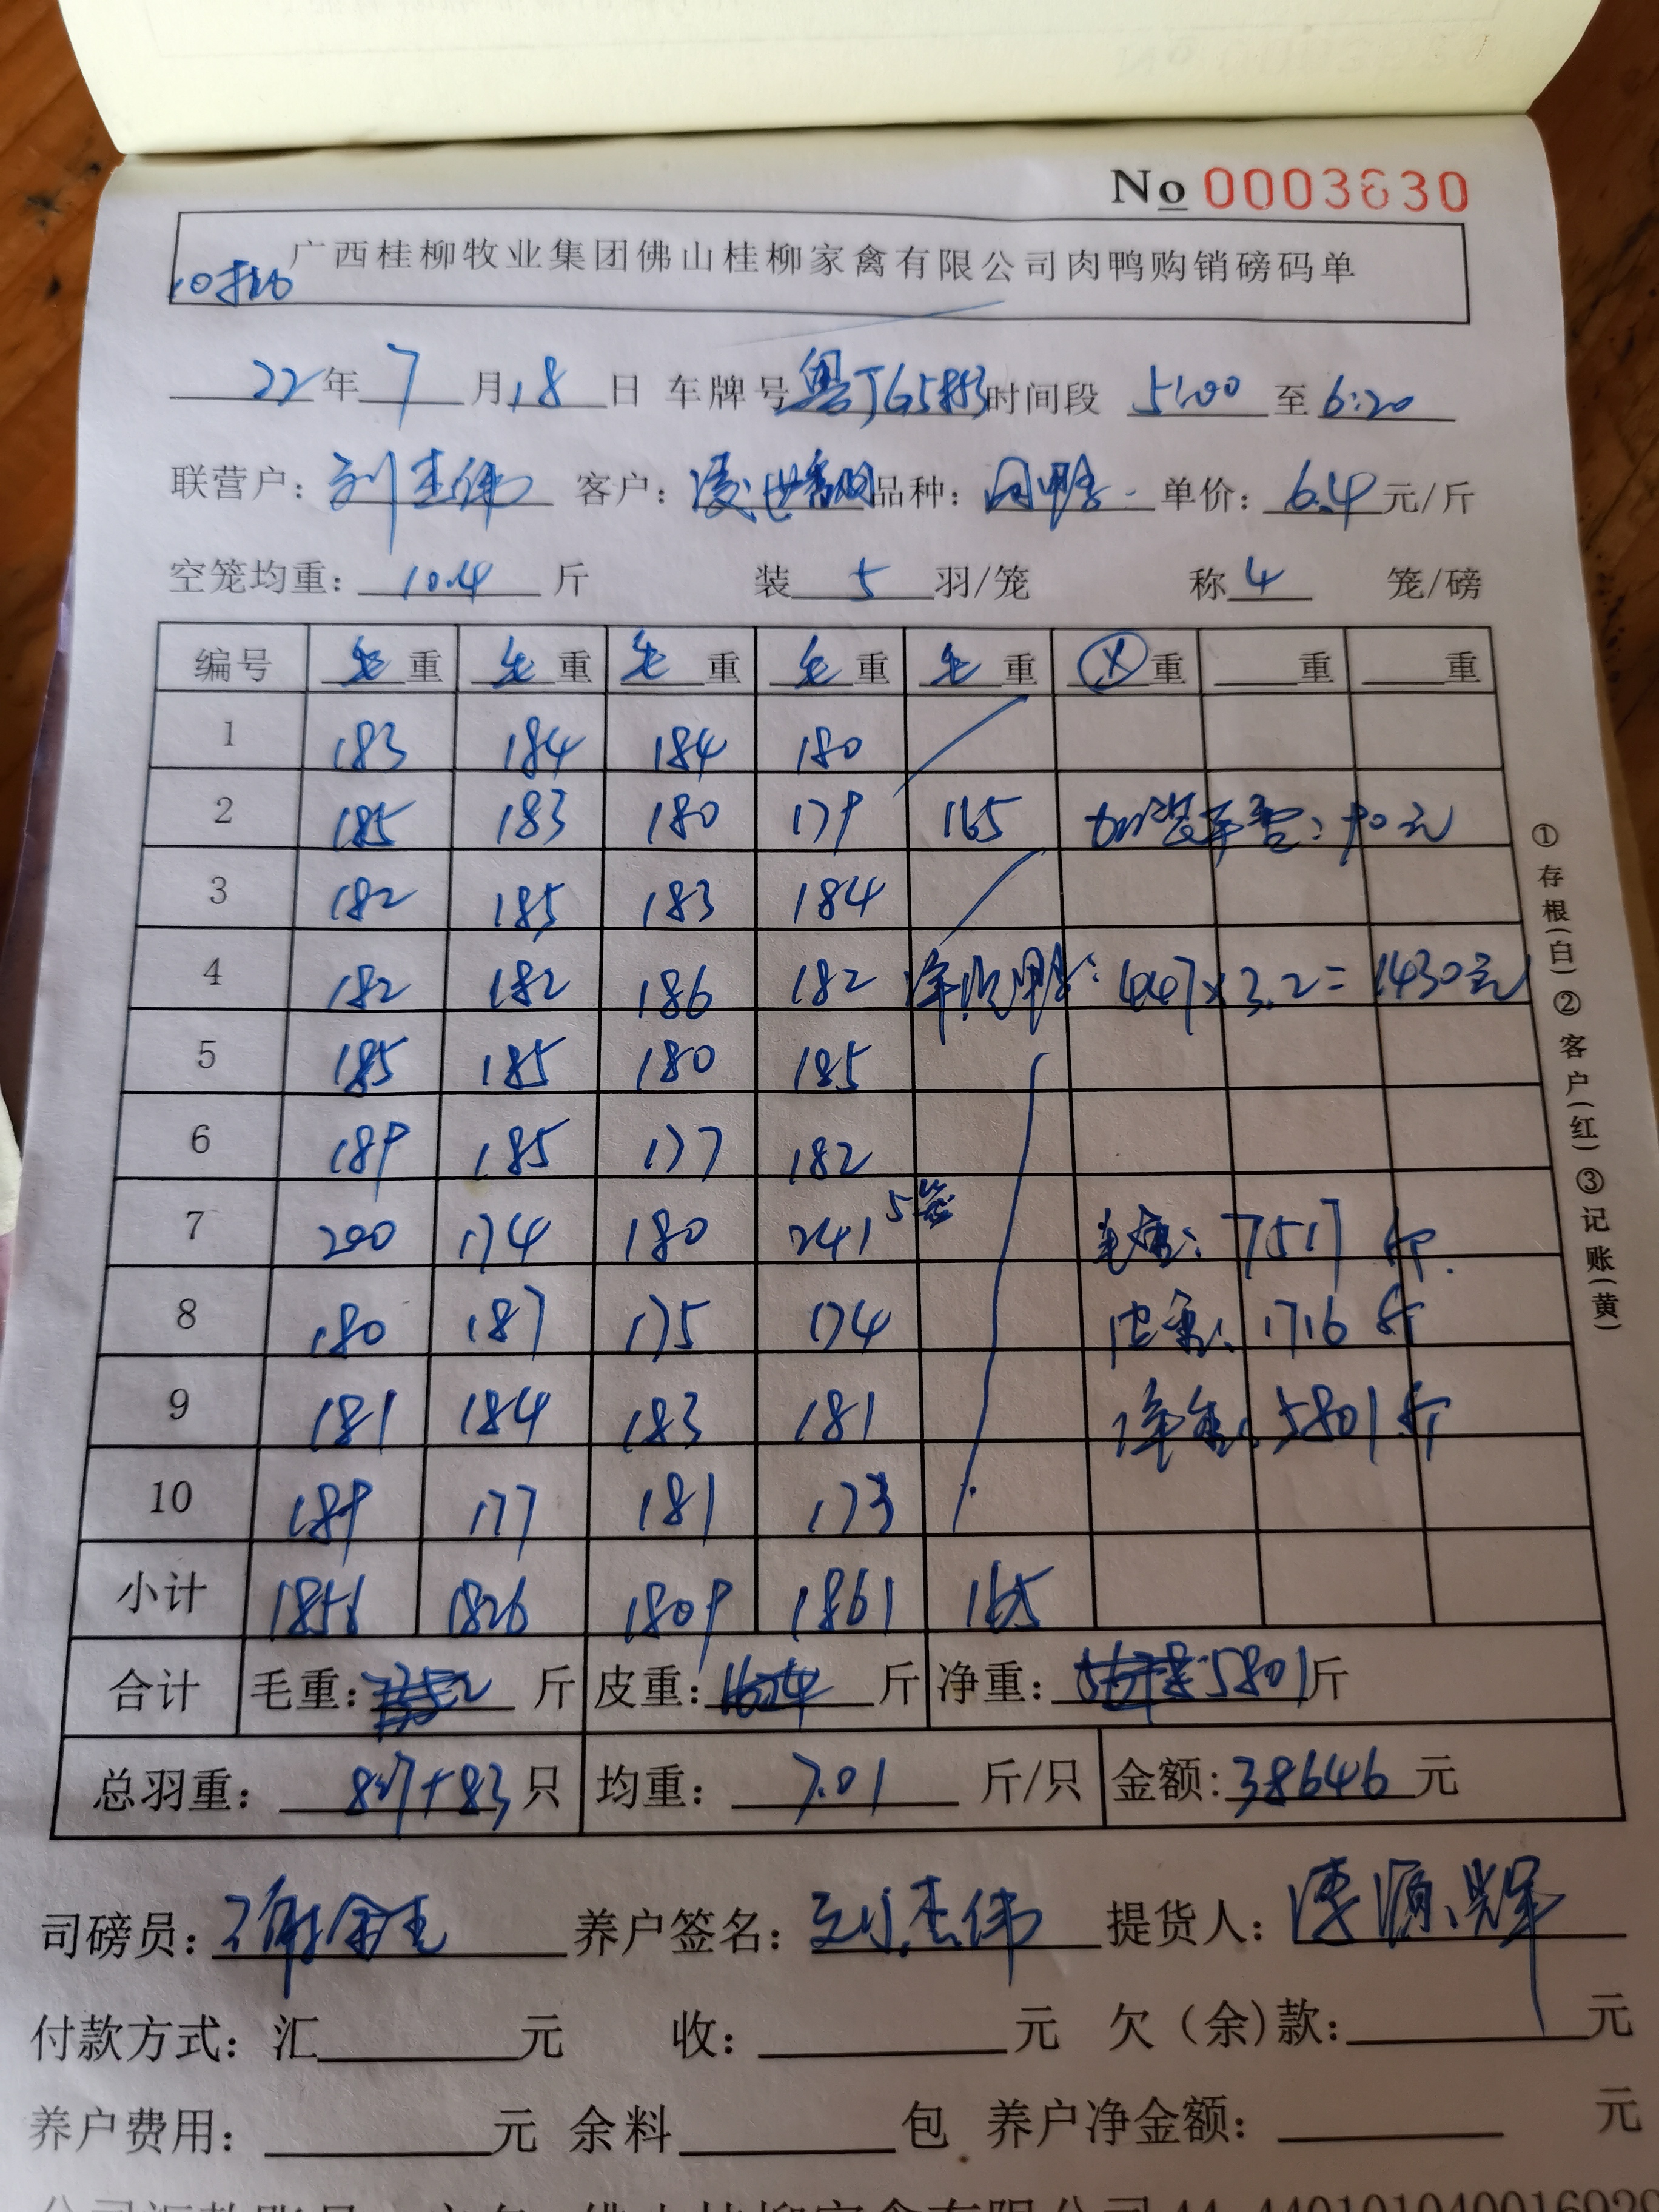 No 0003630
广西桂柳牧业集团佛山桂柳家禽有限公司肉鸭购销磅码单
22年7月18日 车牌号粤J 时间段 5:00 至 6:20
联营户：刘杰伟 客户： 品种：肉鸭 单价：6.4元/斤
空笼均重：10.4 斤 装 5 羽/笼 称 4 笼/磅
编号 毛重 毛重 毛重 毛重 毛重 重 重 重
1 183 184 184 180
2 185 183 180 179 165 加 车费：90元
3 182 185 183 184
4 182 182 186 182 鸭：447×3.2=1430元
5 185 185 180 185
6 189 185 177 182
7 200 174 180 241 5笼 毛重：7517斤
8 180 187 175 174 皮重：1716斤
9 181 184 183 181 净重：5801斤
10 189 177 181 173
小计 1856 1826 1809 1861 165
合计 毛重： 斤 皮重： 斤 净重：5801斤
总羽重： +83只 均重：7.01 斤/只 金额：38646元
司磅员： 养户签名：刘杰伟 提货人： 源辉
付款方式：汇 元 收： 元 欠（余）款： 元
养户费用： 元 余料 包 养户净金额： 元
①存根(白)②客户(红)③记账(黄)